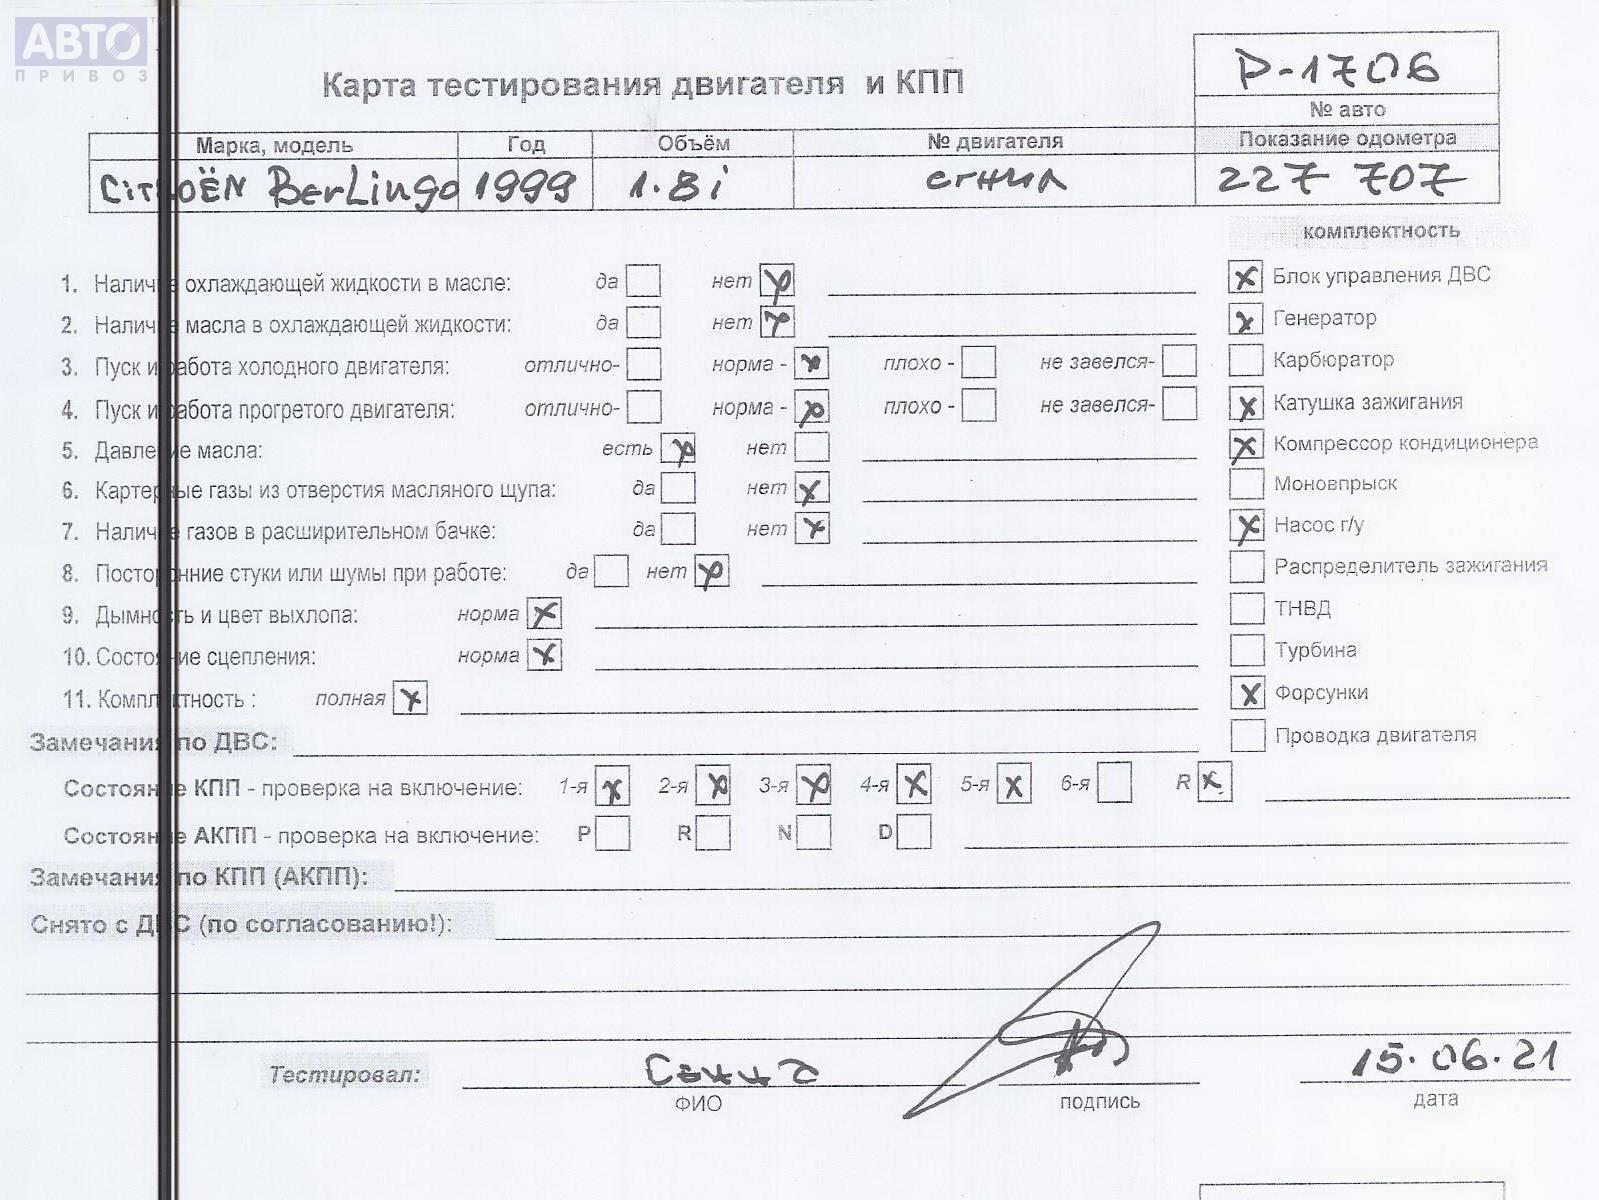 АВТО
ПРИВОЗ
Карта тестирования двигателя и КПП
P-1706
№ авто
Марка, модель Год Объём № двигателя Показание одометра
CitROËN BerLingo 1999 1.8i сгнил 227 707
комплектность
1. Наличие охлаждающей жидкости в масле: да нет
Блок управления ДВС
2. Наличие масла в охлаждающей жидкости: да нет
Генератор
3. Пуск и работа холодного двигателя: отлично- норма - плохо - не завелся-
Карбюратор
4. Пуск и работа прогретого двигателя: отлично- норма - плохо - не завелся-
Катушка зажигания
5. Давление масла: есть нет
Компрессор кондиционера
6. Картерные газы из отверстия масляного щупа: да нет
Моновпрыск
7. Наличие газов в расширительном бачке: да нет
Насос г/у
8. Посторонние стуки или шумы при работе: да нет
Распределитель зажигания
9. Дымность и цвет выхлопа: норма
ТНВД
10. Состояние сцепления: норма
Турбина
11. Комплектность : полная
Форсунки
Замечания по ДВС:
Проводка двигателя
Состояние КПП - проверка на включение: 1-я 2-я 3-я 4-я 5-я 6-я R
Состояние АКПП - проверка на включение: P R N D
Замечания по КПП (АКПП):
Снято с ДВС (по согласованию!):
Тестировал: 15.06.21
ФИО подпись дата